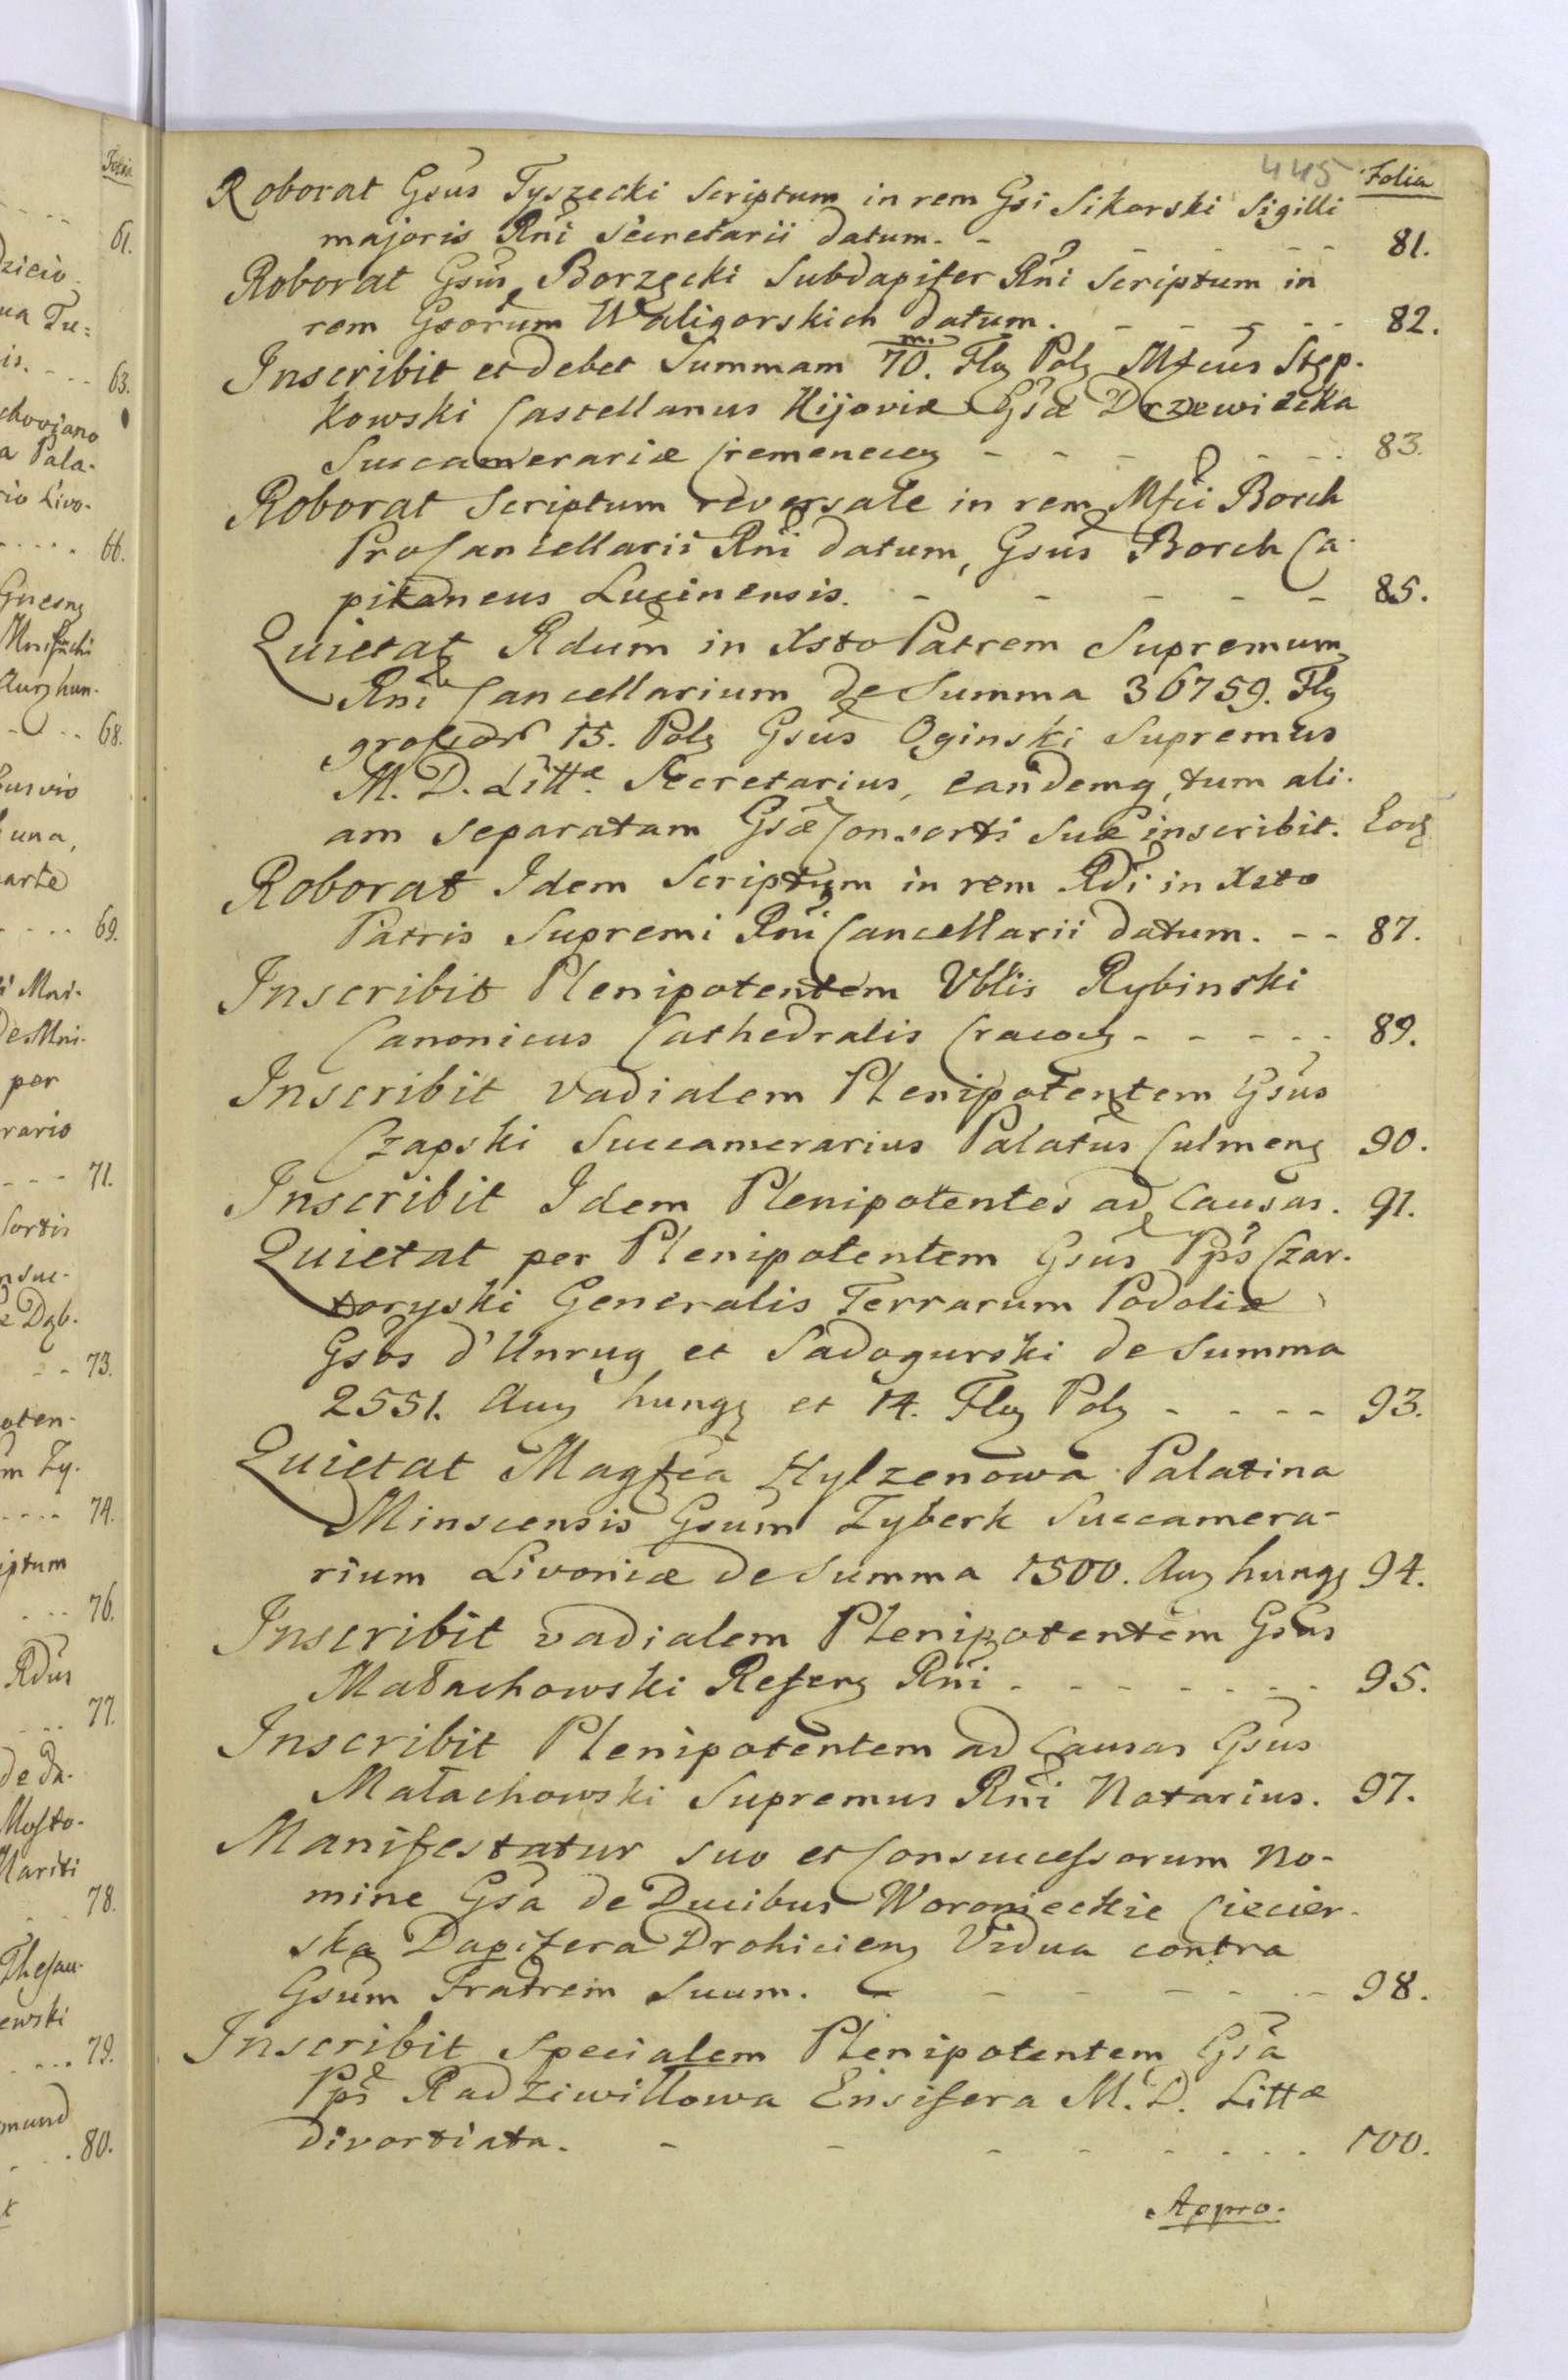 445 Folia
Roborat Gsus Tyszecki Scriptum in rem Gsi Sikorski Sigilli
majoris Rni Secretarii datum. - - - - 81.
Roborat Gsus Borzęcki Subdapifer Rni Scriptum in
rem Gsorum Waligorskich datum. - - - - - 82.
Inscribit et debet Summam 70.m. Flg Polg Mfcus Stęp-
kowski Castellanus Kijoviæ Gsæ Drzewiecka
Succamerariæ Cremenecen - - - - - 83.
Roborat Scriptum reversale in rem Mfci Borch
ProCancellarii Rni datum, Gsus Borch Ca-
pitaneus Lucinensis. - - - - - 85.
Quietat Rdum in Xsto Patrem Supremum
Rni Cancellarium de Summa 36759. Flg
grossor 15. Polg Gsus Oginski Supremus
M. D. Littæ Secretarius, eandemq, tum ali-
am separatam Gsæ Consorti suæ inscribit. Eod
Roborat Idem Scriptum in rem Rdi in Xsto
Patris Supremi Rni Cancellarii datum. - - 87.
Inscribit Plenipotentem Vblis Rybinski
Canonicus Cathedralis Cracov - - - - - 89.
Inscribit vadialem Plenipotentem Gsus
Czapski Succamerarius Palatus Culmens 90.
Inscribit Idem Plenipotentes ad Causas. 91.
Quietat per Plenipotentem Gsus Pps Czar-
toryski Generalis Terrarum Podoliæ
Gsos d'Unrug et Sadogurski de Summa
2551. Aug hungg et 14. Flg Polg - - - - 93.
Quietat Magfca Hylzenowa Palatina
Minscensis Gsum Zyberk Succamera-
rium Livoniæ de Summa 1500. Aug hungg 94.
Inscribit vadialem Plenipotentem Gsus
Małachowski Referg Rni - - - - - - - 95.
Inscribit Plenipotentem ad Causas Gsus
Małachowski Supremus Rni Notarius. 97.
Manifestatur suo et Consuccessorum no-
mine Gsa de Ducibus Woronieckie Ciecier-
ska Dapifera Drohiciens Vidua contra
Gsum Fratrem Suum. - - - - - - 98.
Inscribit specialem Plenipotentem Gsa
Pps Radziwiłłowa Ensifera M. D. Littæ
divortiata. - - - - - - - - 100.
Appro.